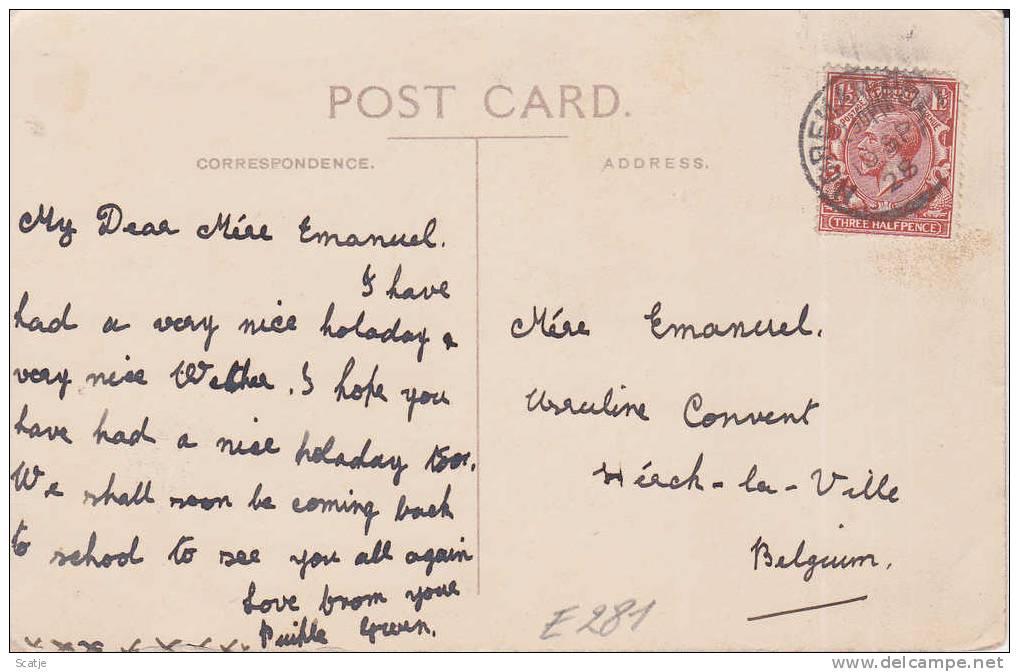 POST CARD.
CORRESPONDENCE.
ADDRESS.
THREE HALFPENCE
28
My Dear Mére Emanuel.
I have
had a very nice holaday &
very nice Wether. I hope you
have had a nice holaday too.
We shall soon be coming back
to school to see you all again
Love from your
Green.
x x x x x x x
Mére Emanuel.
Ursuline Convent
Hérck-la-Ville
Belgium.
E 281
Scatje
www.delcampe.net